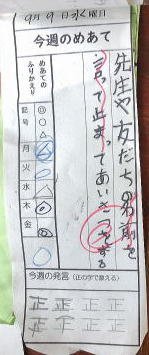 9月9日水曜日
今週のめあて
先生や友だちの名前を
言って止まってあいさつをする
めあての
ふりかえり
記号 ◎ ○ △
月 ◎
火 ○
水 △
木 ◎
金 ◎
今週の発言(正の字で数える)
正正正正
正正正正